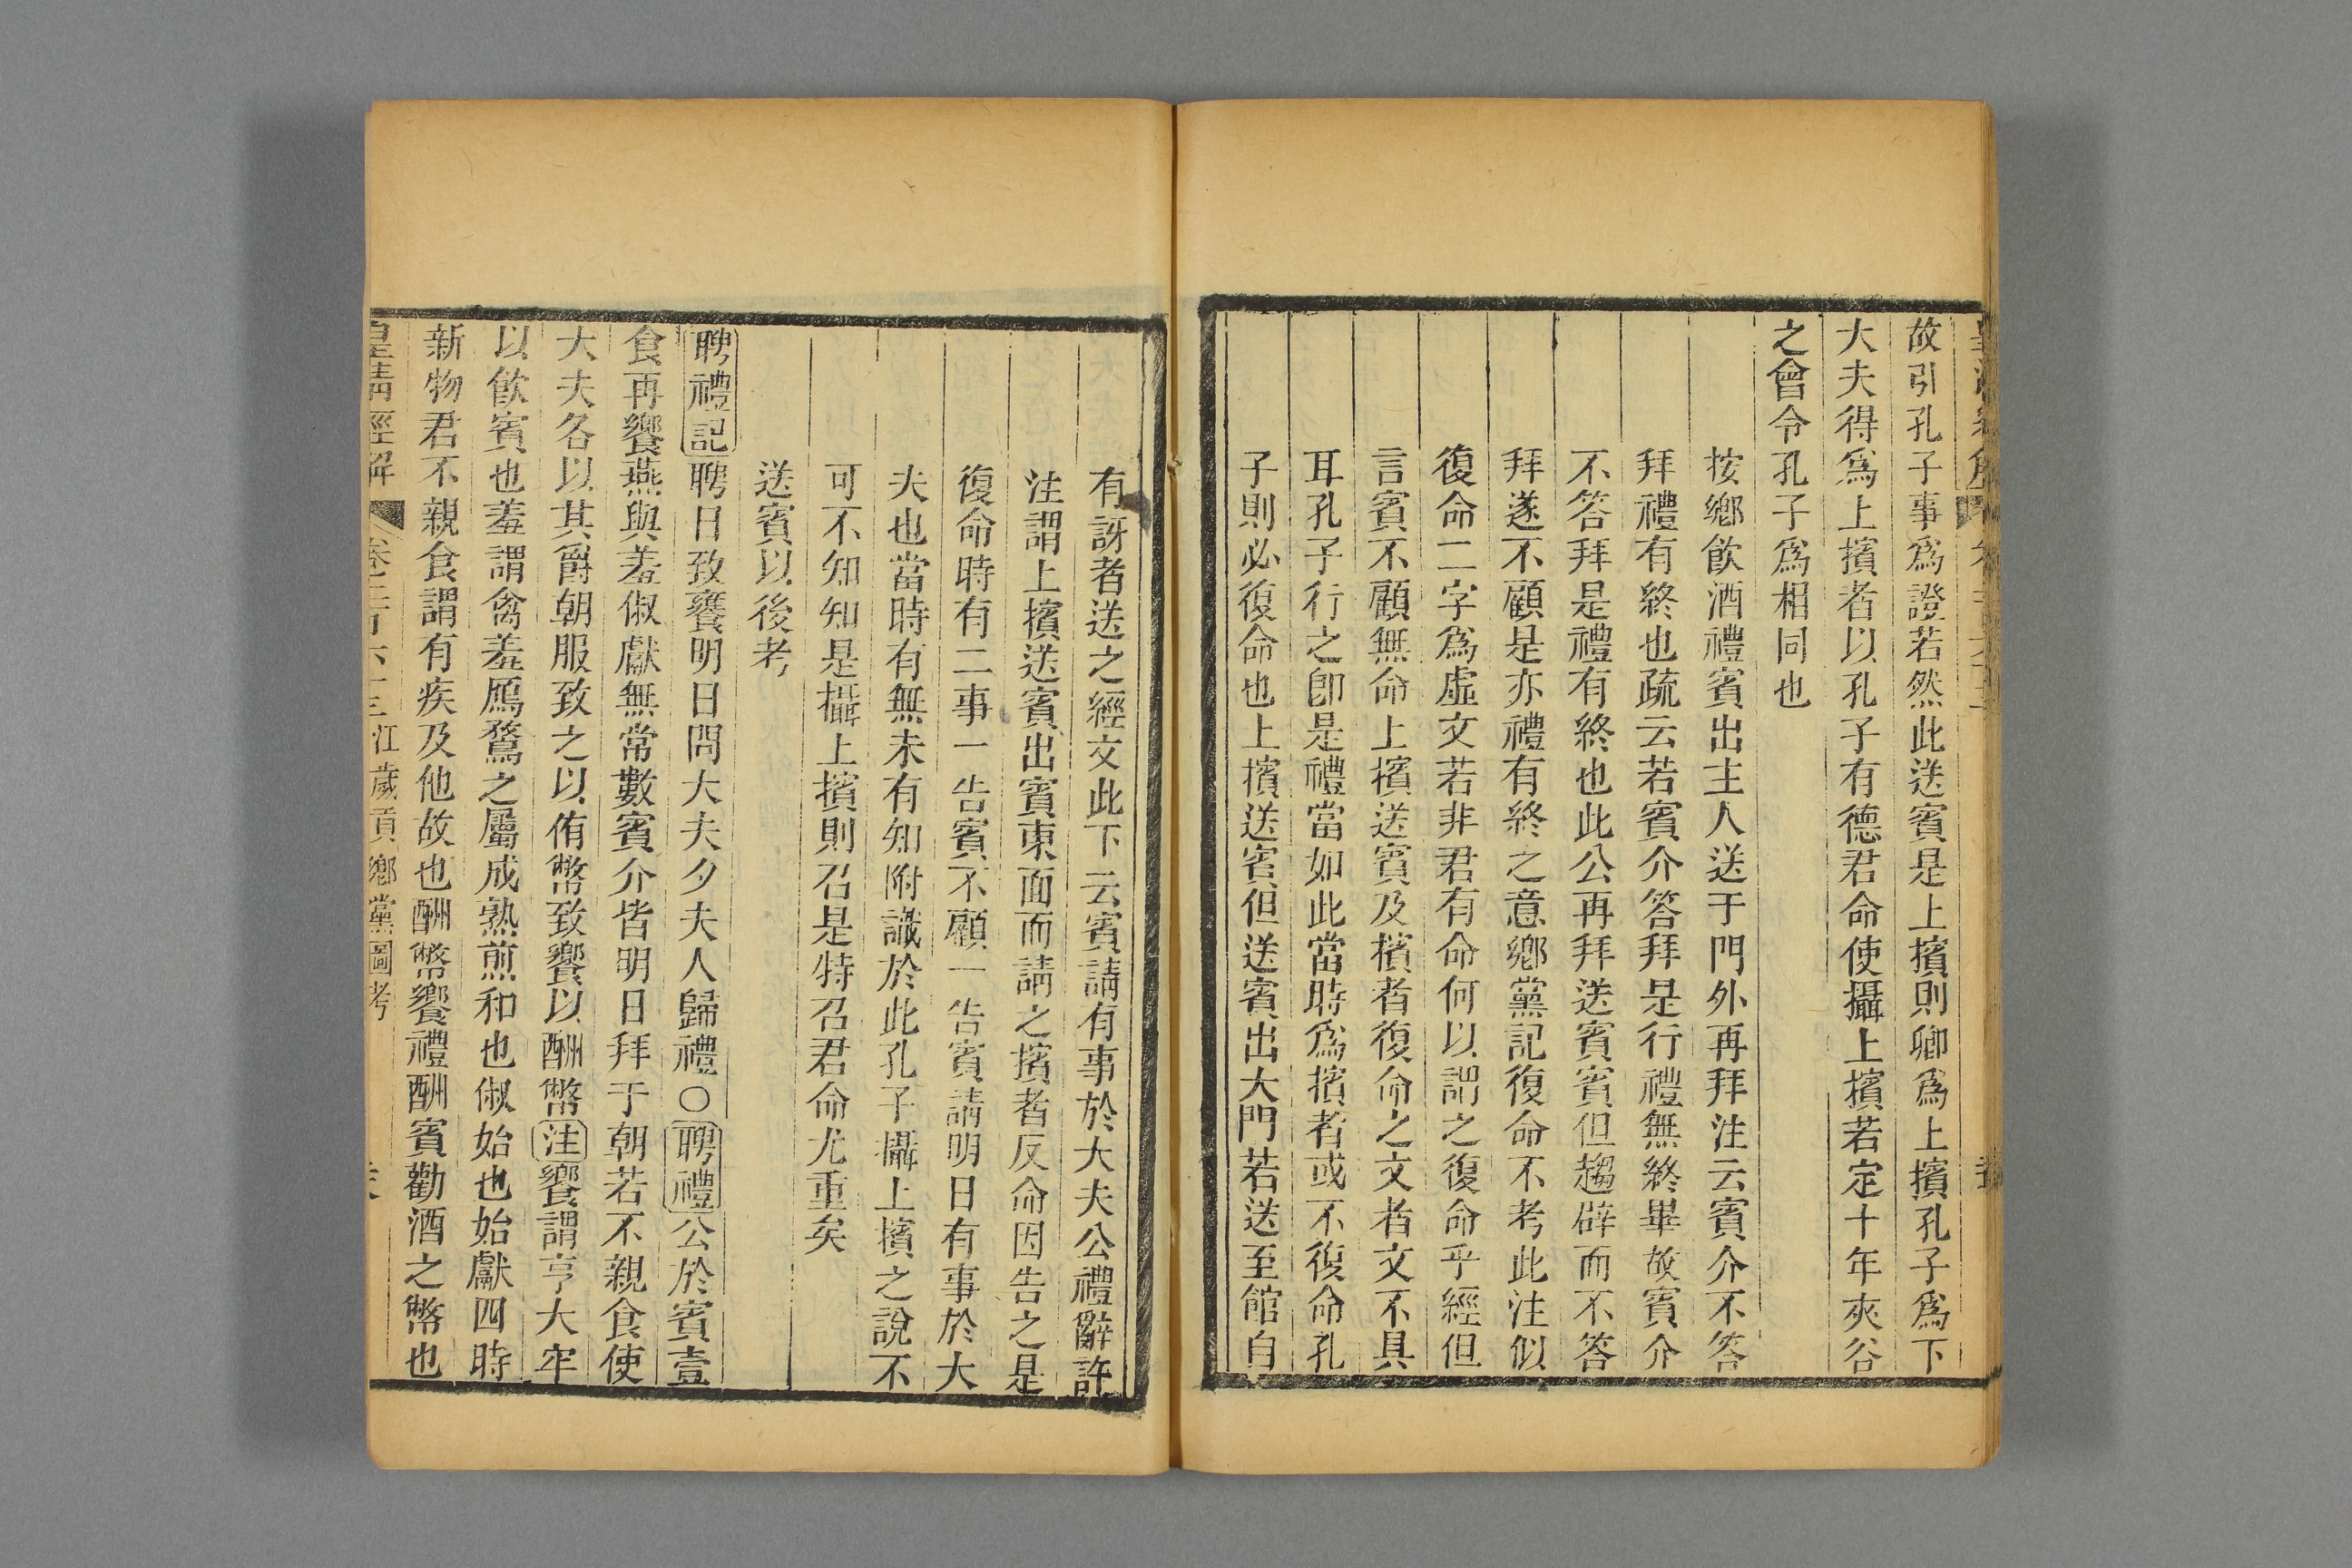 故引孔子事爲證若然此送賓是上擯則卿爲上擯孔子爲下
大夫得爲上擯者以孔子有德君命使攝上擯若定十年夾谷
之會令孔子爲相同也
按鄉飲酒禮賓出主人送于門外再拜注云賓介不答
拜禮有終也疏云若賓介答拜是行禮無終畢故賓介
不答拜是禮有終也此公再拜送賓賓但趨辟而不答
拜遂不顧是亦禮有終之意鄉黨記復命不考此注似
復命二字爲虛文若非君有命何以謂之復命乎經但
言賓不顧無命上擯送賓及擯者復命之文者文不具
耳孔子行之卽是禮當如此當時爲擯者或不復命孔
子則必復命也上擯送賓但送賓出大門若送至館自
有訝者送之經文此下云賓請有事於大夫公禮辭許
注謂上擯送賓出賓東面而請之擯者反命因告之是
復命時有二事一告賓不顧一告賓請明日有事於大
夫也當時有無未有知附識於此孔子攝上擯之說不
可不知知是攝上擯則召是特召君命尤重矣
送賓以後考
聘禮記聘日致饔明日問大夫夕夫人歸禮○聘禮公於賓壹
食再饗燕與羞俶獻無常數賓介皆明日拜于朝若不親食使
大夫各以其爵朝服致之以侑幣致饗以酬幣注饗謂亨大牢
以飲賓也羞謂禽羞鴈鶩之屬成熟煎和也俶始也始獻四時
新物君不親食謂有疾及他故也酬幣饗禮酬賓勸酒之幣也
皇清經解 卷二百六十三 江歲貢鄉黨圖考